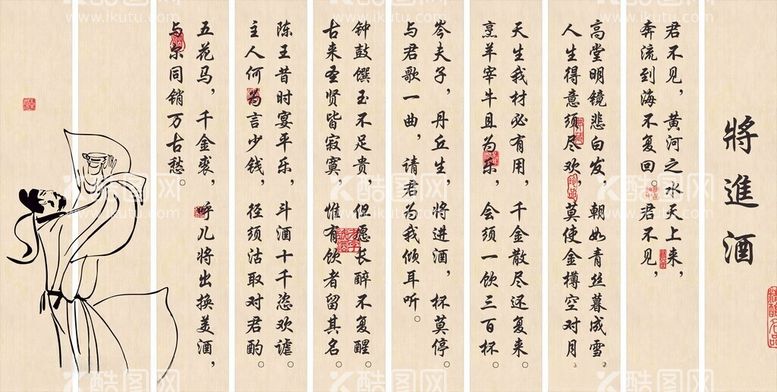 將進酒
君不见，黄河之水天上来，
奔流到海不复回。君不见，
高堂明镜悲白发，朝如青丝暮成雪。
人生得意须尽欢，莫使金樽空对月。
天生我材必有用，千金散尽还复来。
烹羊宰牛且为乐，会须一饮三百杯。
岑夫子，丹丘生，将进酒，杯莫停。
与君歌一曲，请君为我倾耳听。
钟鼓馔玉不足贵，但愿长醉不复醒。
古来圣贤皆寂寞，惟有饮者留其名。
陈王昔时宴平乐，斗酒十千恣欢谑。
主人何为言少钱，径须沽取对君酌。
五花马，千金裘，呼儿将出换美酒，
与尔同销万古愁。